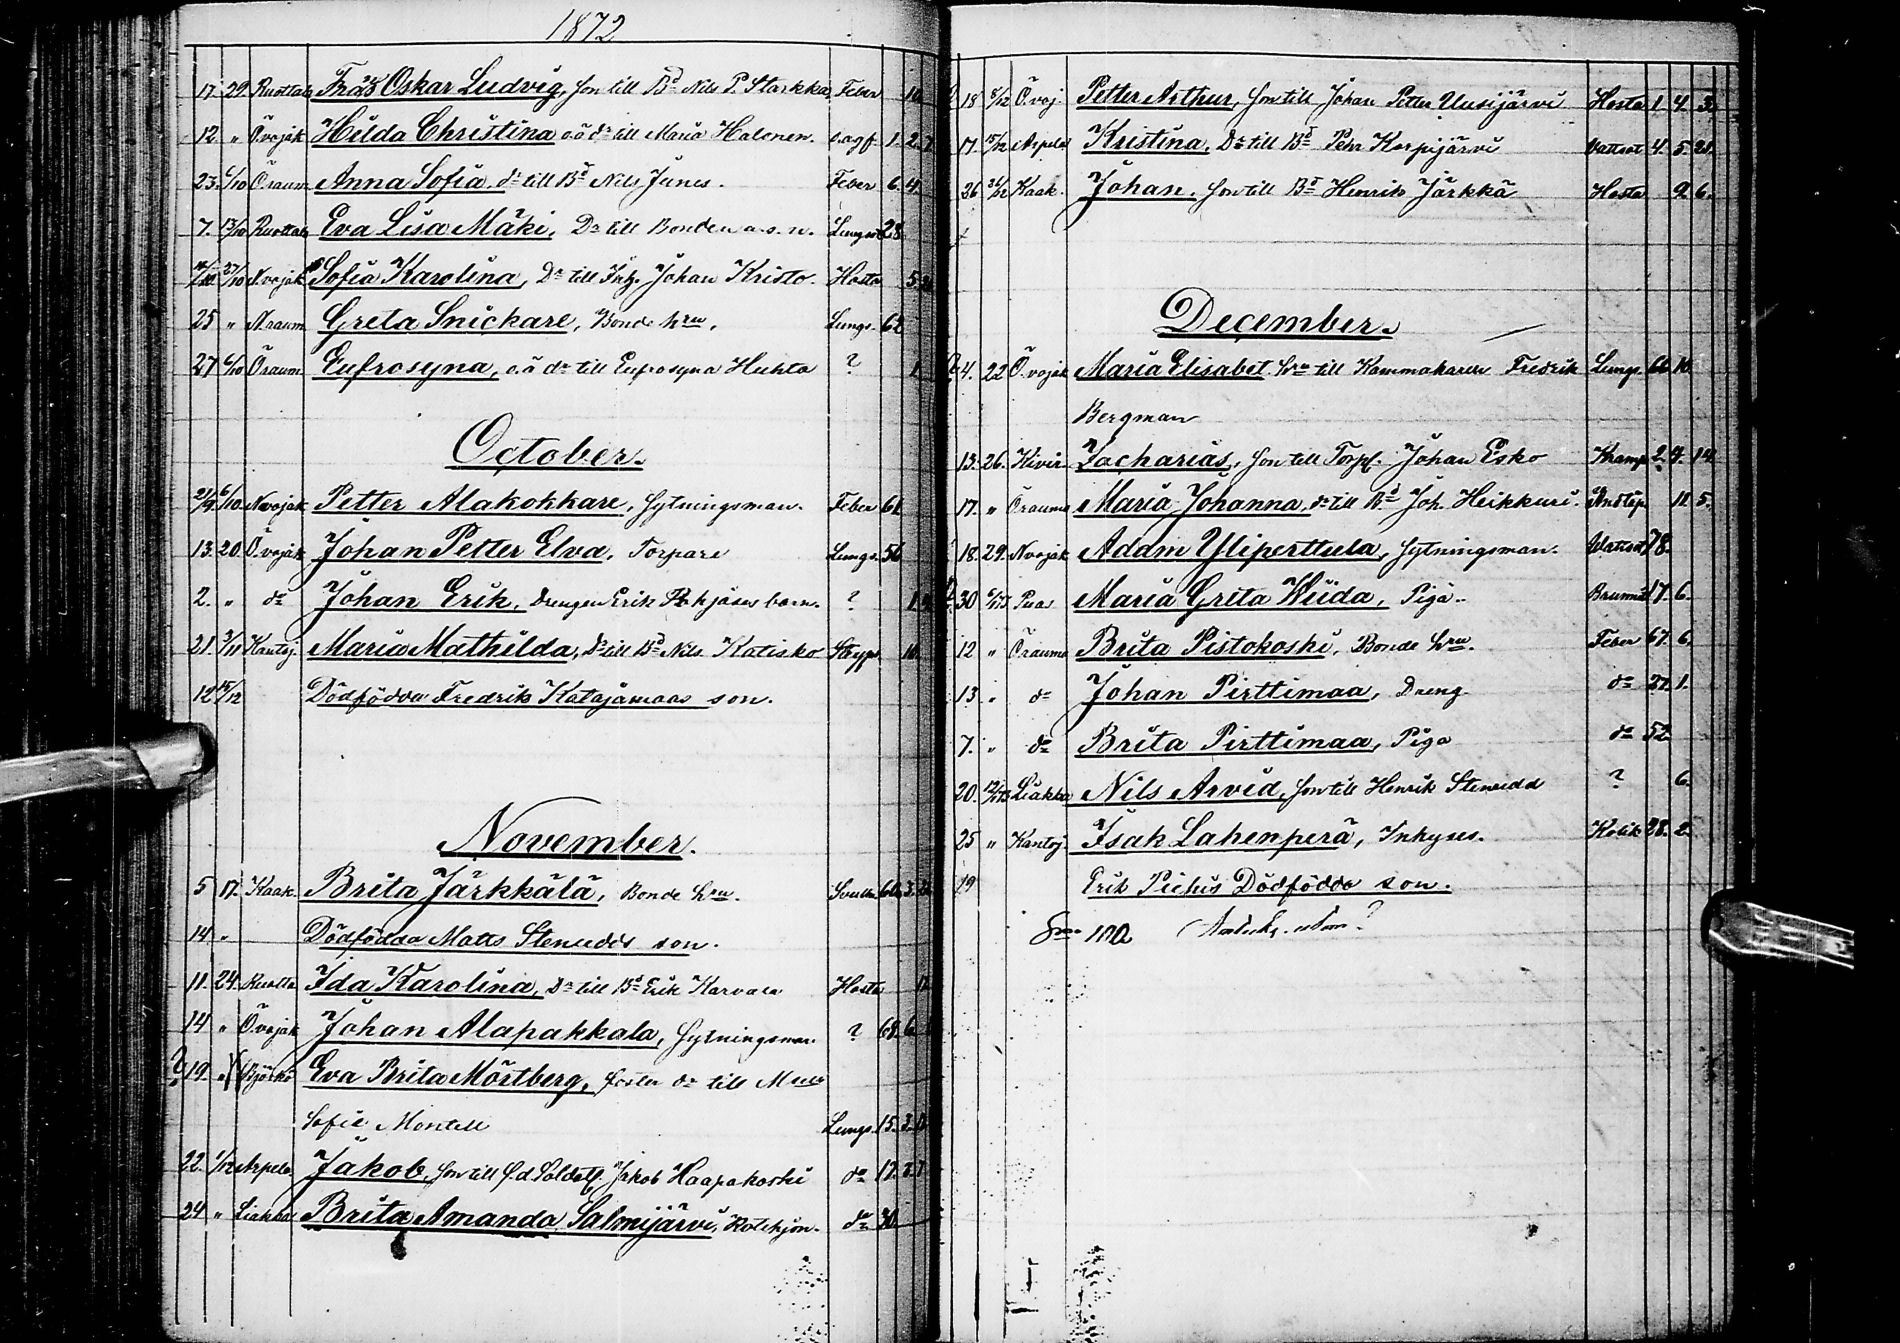 1872
17 29. Ruottala Frans Oskar Ludvig, son till Bd Nils P. Starkka, Feber 10
12 " Övojak Hilda Christina o.ä dr till Maria Halonen. 1. 2. 7
23 6/10 Öraum Anna Sofia, dr till Bd Nils Junes. Feber 6. 4.
7. 13/10 Ruottala Eva Lisa Mäki, Dr till Bonden a. s. n. Lungsot 28
27/10 N.vojak Sofia Karolina, Dr till Inh. Johan Kristo. Hosta 5
25 " N.raum Greta Snickare, Bonde hru, Lungs. 62
27 6/10 Öraum Eufrosyna, o.ä dr till Eufrosyna Huhta ? 1
October.
21/9 6/10 N.vojak Petter Alakokkare, sytningsman. Feber 61
13. 20. Ö.vojak Johan Petter Elva, Torpare Lungs. 56
2. " do Johan Erik, Drengen Erik barn. ? 1
21. 3/11 Kantoj. Maria Mathilda, Dr till Bd Nils Katisko 10.
12 15/12 Dödfödda Fredrik Katajamaas son.
November.
5 17. Kaak. Brita Järkkälä, Bonde hru.
14 " Dödfödda Matts Stenudds son.
11. 24. Ruotta Ida Karolina, Dr till Bd Erik Karvala Hosta
14 " Ö.vojak Johan Alapakkala, Sytningsman ? 68. 6.
? 19. " Björkö Eva Brita Mörtberg, foster dr till
Sofie Montell Lungs. 15. 3.
22. 1/12 Arpela Jakob, son till f.d. Jakob Haapakoski do 17.
24 " Liakka Brita Amanda Salmijärvi, do 30
18 8/12 Ö.voj. Petter Arthur, Son till Johan Petter Uusijärvi Hosta 1. 4. 3.
17. 15/12 Arpela Kristina, Dr till Bd Pehr Korpijärvi Vattsot 4. 5. 21.
26 Kaak. Johan, Son till Bd Henrik Järkkä Hosta 9 6.
December.
4. 22 Ö.vojak Maria Elisabet hru till Kammakaren Fredrik Lungs. 66. 10.
Bergman
13. 26. Kivir. Zacharias, Son till Torp. Johan Esko Kramp 2. 9. 14.
17. " Öraumo Maria Johanna, dr till Bd Joh. Heikkuri. 11. 5.
18. 29. N.vojak Adam Yliperttula, Sytningsman. Wattsot 78.
30 Puas Maria Greta Wiida, Piga. 17. 6.
12 " Öraumo Brita Pistokoski, Bonde hru. Feber 67. 6.
13. " do Johan Pirttimaa, Dreng do 27. 1.
7. " do Brita Pirttimaa, Piga do 52
20. Liakka Nils Arvid, Son till Henrik Stenudd ? 6.
25 " Kantoj. Isak Lahenperä, Inhyses. Kolik 28. 2.
19 Erik Pichis Dödfödda son.